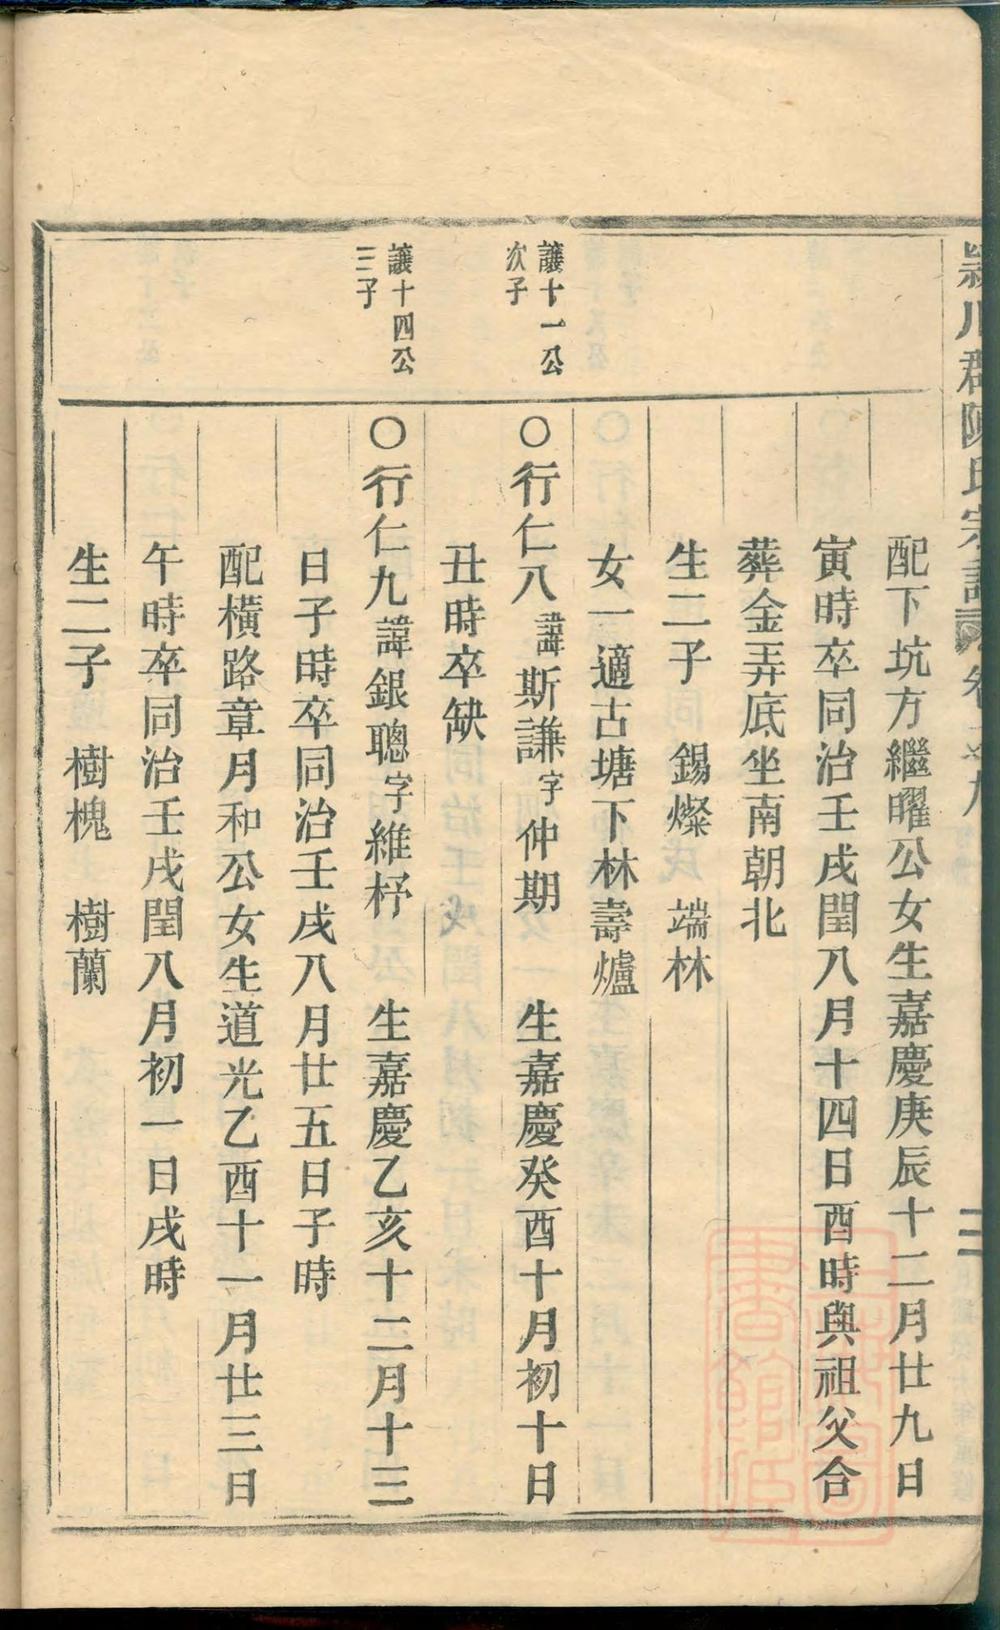 潁川郡陳氏宗譜
配下坑方繼曜公女生嘉慶庚辰十二月廿九日
寅時卒同治壬戌閏八月十四日酉時與祖父合
葬金弄底坐南朝北
生二子 錫燦 端林
女一適古塘下林壽爐
讓十一公
次子
○行仁八諱斯謙字仲期 生嘉慶癸酉十月初十日
丑時卒缺
讓十四公
三子
○行仁九諱銀聰字維杼 生嘉慶乙亥十二月十三
日子時卒同治壬戌八月廿五日子時
配橫路章月和公女生道光乙酉十一月廿三日
午時卒同治壬戌閏八月初一日戌時
生二子 樹槐 樹蘭